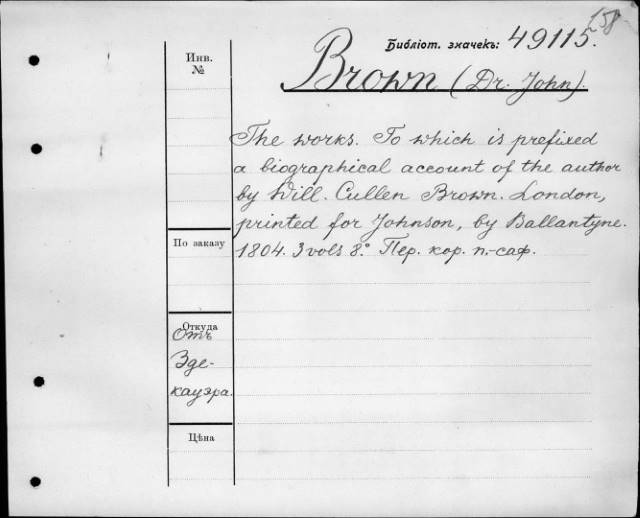 158
Библіот. значекъ: 49115.
Инв.
№
Brown (Dr. John).
The works. To which is prefixed
a biographical account of the author
by Will. Cullen Brown. London,
printed for Johnson, by Ballantyne.
1804. 3 vols 8.° Пер. кор. п.-саф.
По заказу
Откуда
Отъ
Эде-
кауэра.
Цѣна